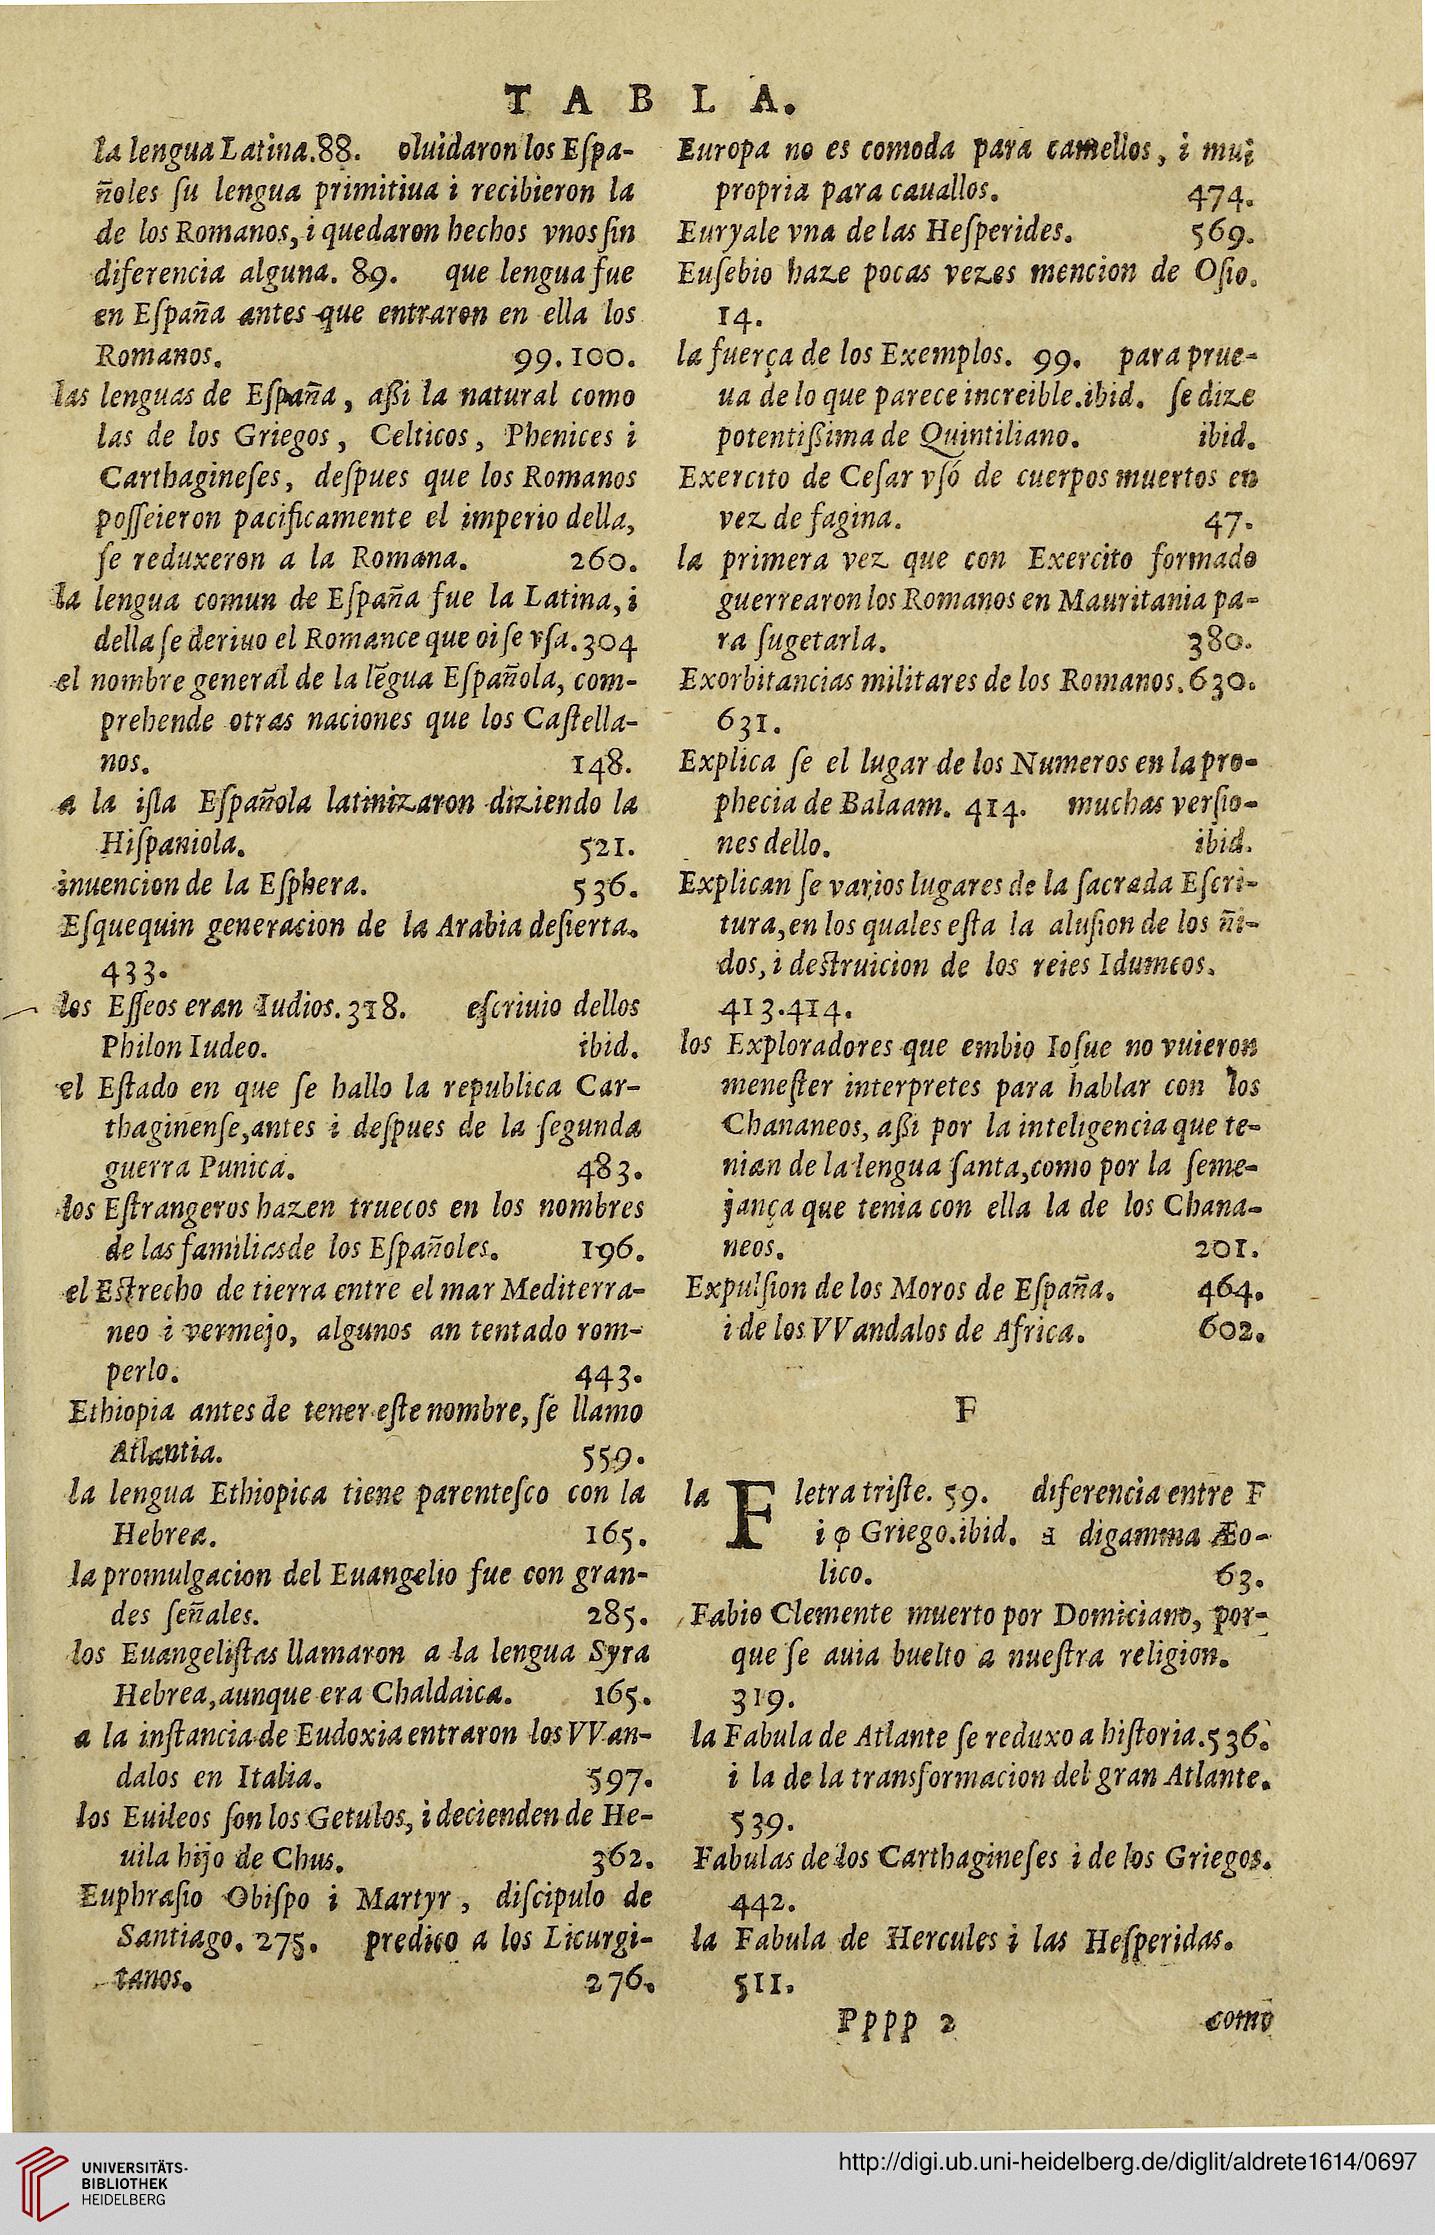 TABLA.
la lengua Latina.88. oluidaron los Eſpa-
ñoles ſu lengua primitiua i recibieron la
de los Romanos, i quedaron hechos vnos ſin
diferencia alguna. 89. que lengua fue
en Eſpaña antes que entraron en ella los
Romanos. 99.100.
las lenguas de Eſpaña, aßi la natural como
las de los Griegos, Celticos, Phenices i
Carthagineſes, deſpues que los Romanos
poſſeieron pacificamente el imperio della,
ſe reduxeron a la Romana. 260.
la lengua comun de Eſpaña fue la Latina, i
della ſe deriuo el Romance que oi ſe vſa.304
el nombre general de la lẽgua Eſpañola, com-
prehende otras naciones que los Caſtella-
nos. 148.
a la iſla Eſpañola latinizaron diziendo la
Hiſpaniola. 521.
inuencion de la Eſphera. 536.
Eſquequin generacion de la Arabia deſierta.
433.
los Eſſeos eran Iudios.318. eſcriuio dellos
Philon Iudeo. ibid.
el Eſtado en que ſe hallo la republica Car-
thaginenſe,antes i deſpues de la ſegunda
guerra Punica. 483.
los Eſtrangeros hazen truecos en los nombres
de las familias de los Eſpañoles. 196.
el Eſtrecho de tierra entre el mar Mediterra-
neo i vermejo, algunos an tentado rom-
perlo. 443.
Ethiopia antes de tener eſte nombre, ſe llamo
Atlantia. 559.
la lengua Ethiopica tiene parenteſco con la
Hebrea. 165.
la promulgacion del Euangelio fue con gran-
des ſeñales. 285.
los Euangeliſtas llamaron a la lengua Syra
Hebrea,aunque era Chaldaica. 165.
a la inſtancia de Eudoxia entraron los VVan-
dalos en Italia. 597.
los Euileos ſon los Getulos, i decienden de He-
uila hijo de Chus. 362.
Euphraſio Obiſpo i Martyr, diſcipulo de
Santiago. 275. predico a los Licurgi-
tanos. 276.
Europa no es comoda para camellos, i mui
propria para cauallos. 474.
Euryale vna de las Heſperides. 569.
Euſebio haze pocas vezes mencion de Oſio.
14.
la fuerça de los Exemplos. 99. para prue-
ua de lo que parece increible.ibid. ſe dize
potentißima de Quintiliano. ibid.
Exercito de Ceſar vſó de cuerpos muertos en
vez de fagina. 47.
la primera vez que con Exercito formado
guerrearon los Romanos en Mauritania pa-
ra ſugetarla. 380.
Exorbitancias militares de los Romanos.630.
631.
Explica ſe el lugar de los Numeros en la pro-
phecia de Balaam. 414. muchas verſio-
nes dello. ibid.
Explican ſe varios lugares de la ſacrada Eſcri-
tura,en los quales eſta la aluſion de los ñi-
dos, i deſtruicion de los reies Idumeos.
413.414.
los Exploradores que embio Ioſue no vuieron
meneſter interpretes para hablar con los
Chananeos, aßi por la inteligencia que te-
nian de la lengua ſanta,como por la ſeme-
jança que tenia con ella la de los Chana-
neos. 201.
Expulſion de los Moros de Eſpaña. 464.
i de los VVandalos de Africa. 602.
F
la F letra triſte. 59. diferencia entre F
i φ Griego.ibid. ⅎ digamma Æo-
lico. 63.
Fabio Clemente muerto por Domiciano, por-
que ſe auia buelto a nueſtra religion.
319.
la Fabula de Atlante ſe reduxo a hiſtoria.536.
i la de la transformacion del gran Atlante.
539.
Fabulas de los Carthagineſes i de los Griegos.
442.
la Fabula de Hercules i las Heſperidas.
511.
Pppp 2 como
UNIVERSITÄTS-
BIBLIOTHEK
HEIDELBERG
http://digi.ub.uni-heidelberg.de/diglit/aldrete1614/0697